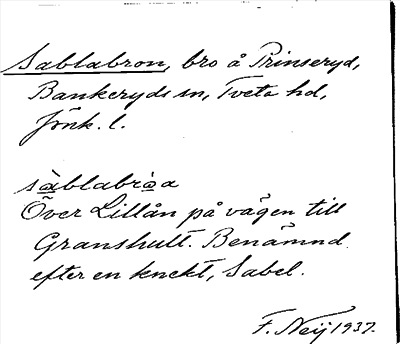 Sablabron, bro å Prinseryd,
Bankeryds sn, Tveta hd,
Jönk. l.
sàblabròa
Över Lillån på vägen till
Granshult. Benämnd
efter en knekt, Sabel.
F. Neij 1937.